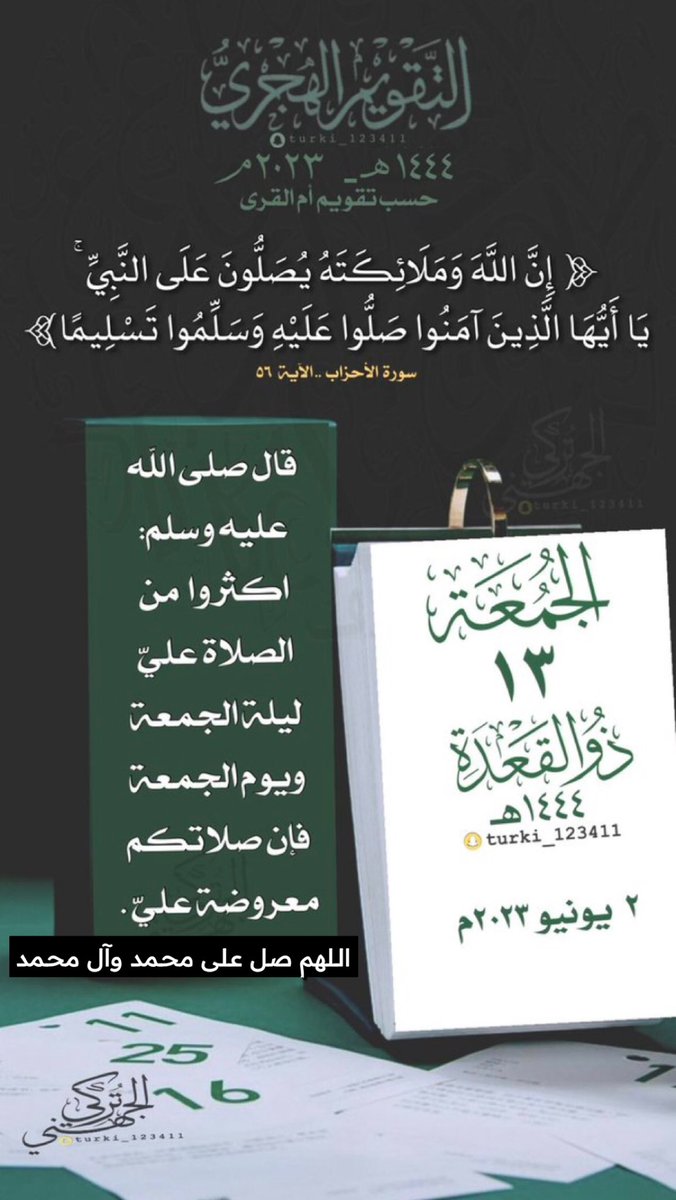 التَّقويم الهجريُّ
turki_123411
١٤٤٤هـ _ ٢٠٢٣م
حسب تقويم أم القرى
﴿ إِنَّ اللَّهَ وَمَلَائِكَتَهُ يُصَلُّونَ عَلَى النَّبِيِّ ۚ
يَا أَيُّهَا الَّذِينَ آمَنُوا صَلُّوا عَلَيْهِ وَسَلِّمُوا تَسْلِيمًا ﴾
سورة الأحزاب ..الآية ٥٦
تركي الجهني
turki_123411
قال صلى الله
عليه وسلم:
اكثروا من
الصلاة عليّ
ليلة الجمعة
ويوم الجمعة
فإن صلاتكم
معروضة عليّ.
اللهم صل على محمد وآل محمد
الجُمُعَة
١٣
ذُو القَعَدَةِ
١٤٤٤هـ
turki_123411
٢ يونيو ٢٠٢٣م
11
25
16
تركي الجهني
turki_123411